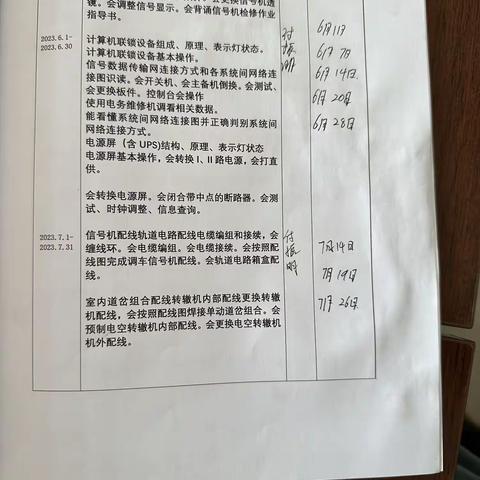 镜。会调整信号显示。会背诵信号机检修作业
指导书。
2023.6.1-
2023.6.30
计算机联锁设备组成、原理、表示灯状态。
计算机联锁设备基本操作。
信号数据传输网连接方式和各系统间网络连
接图识读。会开关机、会主备机倒换。会测试、
会更换板件。控制台会操作
使用电务维修机调看相关数据。
能看懂系统间网络连接图并正确判别系统间
网络连接方式。
电源屏（含 UPS)结构、原理、表示灯状态
电源屏基本操作，会转换 I、II 路电源，会打直
供。
会转换电源屏。会闭合带中点的断路器。会测
试、时钟调整、信息查询。
付振明
6月1日
6月 7月
6月14日
6月 20日
6月 28日
2023.7.1-
2023.7.31
信号机配线轨道电路配线电缆编组和接续，会
缠线环。会电缆编组。会电缆接续。会按照配
线图完成调车信号机配线。会轨道电路箱盒配
线。
室内道岔组合配线转辙机内部配线更换转辙
机配线，会按照配线图焊接单动道岔组合。会
预制电空转辙机内部配线。会更换电空转辙机
机外配线。
付振明
7月14日
7月19日
7月 26日